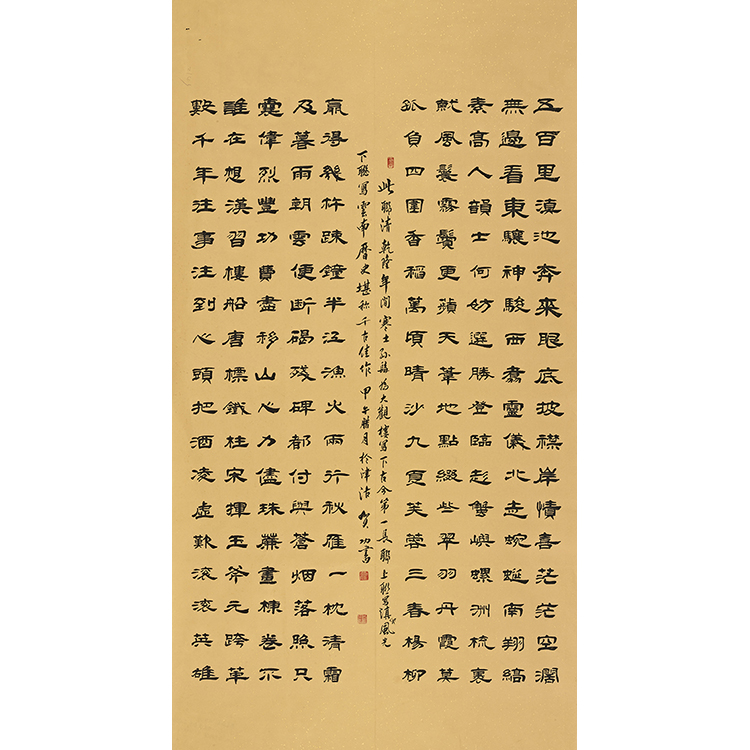 五百里滇池奔來眼底披襟岸幘喜茫茫空濶
無邊看東驤神駿西翥靈儀北走蜿蜒南翔縞
素高人韻士何妨選勝登臨趁蟹嶼螺洲梳裹
就風鬟霧鬢更蘋天葦地點綴些翠羽丹霞莫
孤負四圍香稻萬頃晴沙九夏芙蓉三春楊柳
此聯清乾隆年間寒士孫髯為大觀樓寫下古今第一長聯上聯寫滇池風光
下聯寫雲南曆史堪称千古佳作甲午臘月於津沽賀功書
數千年往事注到心頭把酒凌虛歎滾滾英雄
誰在想漢習樓船唐標鐵柱宋揮玉斧元跨革
囊偉烈豐功費盡移山心力儘珠簾畫棟卷不
及暮雨朝雲便斷碣殘碑都付與蒼烟落照只
贏得幾杵疎鐘半江漁火兩行秋雁一枕清霜